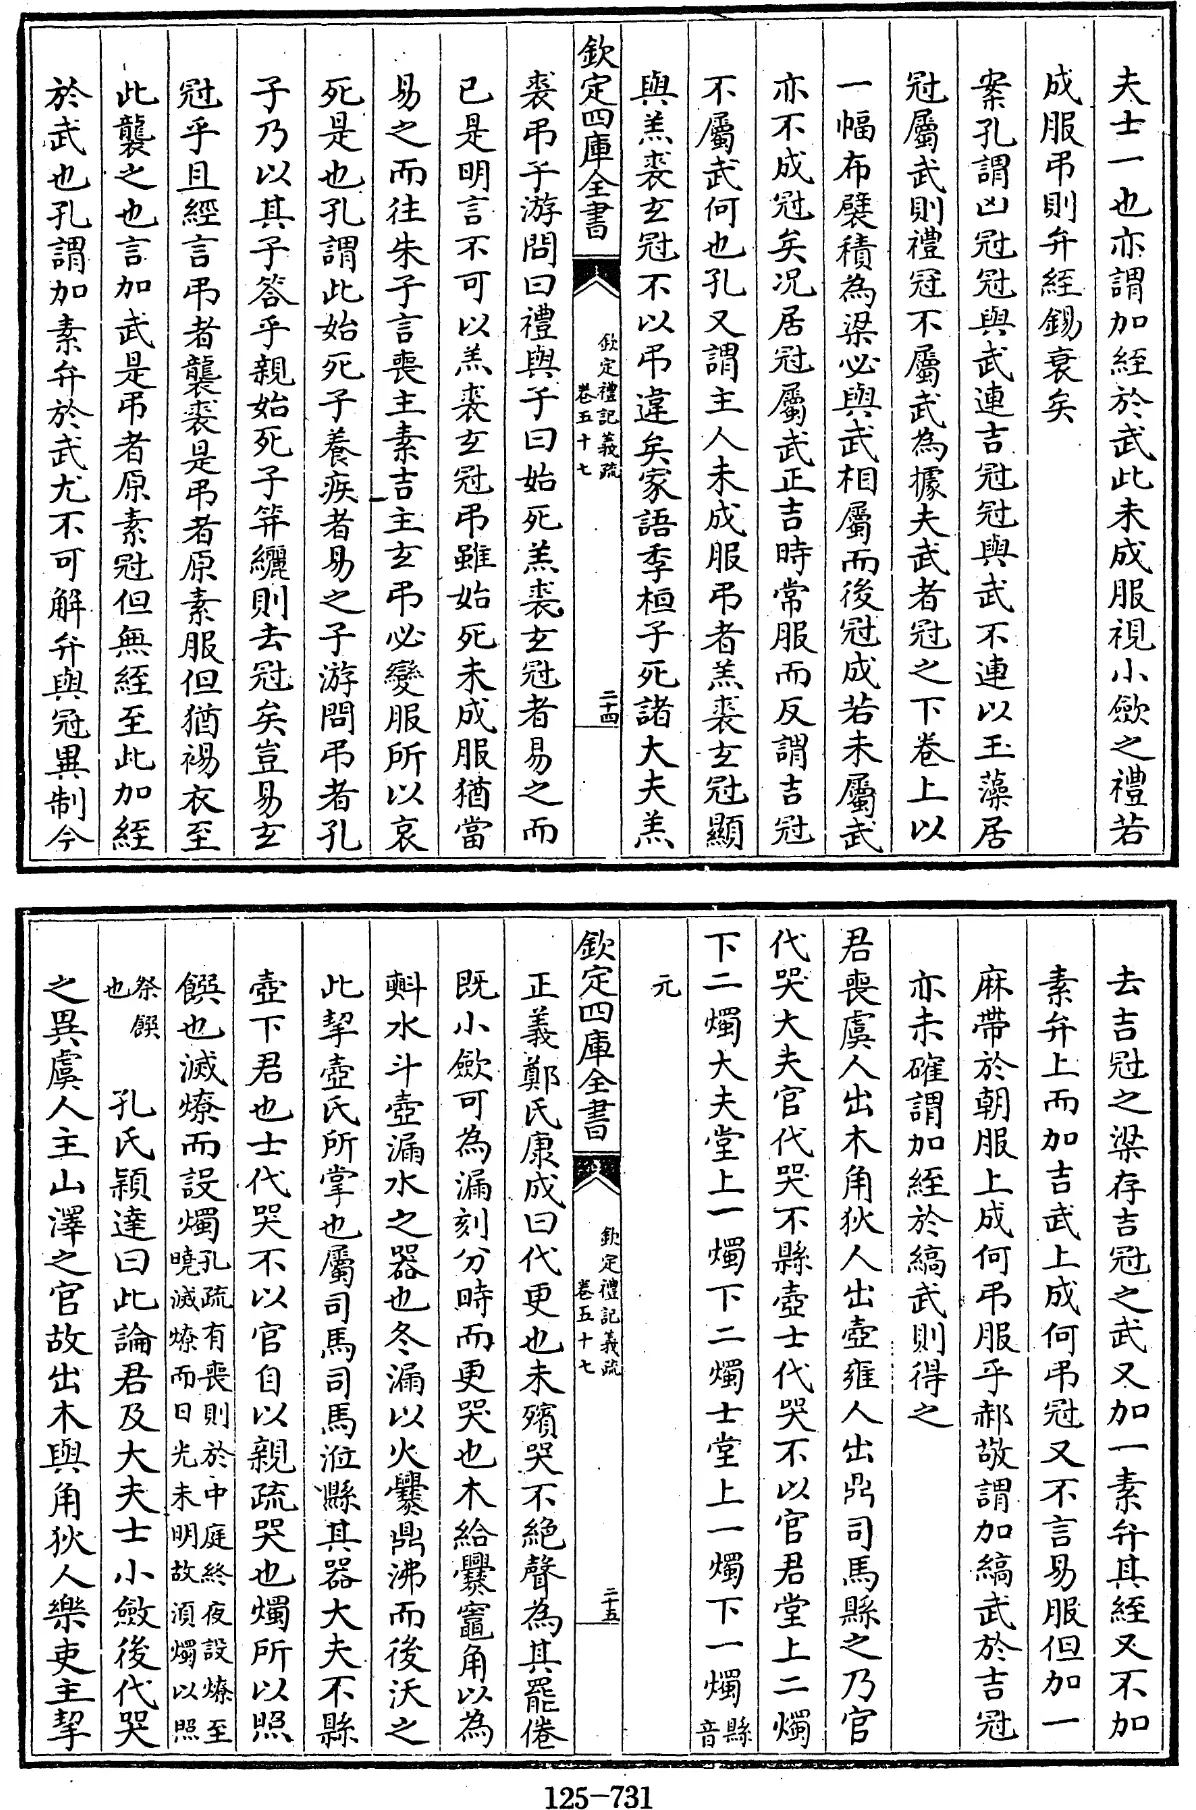 夫士一也亦謂加絰於武此未成服視小歛之禮若
成服弔則弁絰錫衰矣
案孔謂凶冠冠與武連吉冠冠與武不連以玉藻居
冠屬武則禮冠不屬武為據夫武者冠之下卷上以
一幅布襞積為梁必與武相屬而後冠成若未屬武
亦不成冠矣况居冠屬武正吉時常服而反謂吉冠
不屬武何也孔又謂主人未成服弔者羔裘玄冠顯
與羔裘玄冠不以弔違矣家語季桓子死諸大夫羔
欽定四庫全書
欽定禮記義疏
卷五十七
二十四
裘弔子游問曰禮與子曰始死羔裘玄冠者易之而
已是明言不可以羔裘玄冠弔雖始死未成服猶當
易之而往朱子言喪主素吉主玄弔必變服所以哀
死是也孔謂此始死子養疾者易之子游問弔者孔
子乃以其子答乎親始死子笄纚則去冠矣豈易玄
冠乎且經言弔者襲裘是弔者原素服但猶裼衣至
此襲之也言加武是弔者原素冠但無絰至此加絰
於武也孔謂加素弁於武尤不可解弁與冠異制今
去吉冠之梁存吉冠之武又加一素弁其絰又不加
素弁上而加吉武上成何弔冠又不言易服但加一
麻帶於朝服上成何弔服乎郝敬謂加縞武於吉冠
亦未確謂加絰於縞武則得之
君喪虞人出木角狄人出壺雍人出鼎司馬縣之乃官
代哭大夫官代哭不縣壺士代哭不以官君堂上二燭
下二燭大夫堂上一燭下二燭士堂上一燭下一燭縣音
元
欽定四庫全書
欽定禮記義疏
卷五十七
二十五
正義鄭氏康成曰代更也未殯哭不絶聲為其罷倦
既小歛可為漏刻分時而更哭也木給爨竈角以為
㪺水斗壺漏水之器也冬漏以火爨鼎沸而後沃之
此挈壺氏所掌也屬司馬司馬涖縣其器大夫不縣
壺下君也士代哭不以官自以親疏哭也燭所以照
饌也滅燎而設燭孔疏有喪則於中庭終夜設燎至曉滅燎而日光未明故須燭以照
祭饌也 孔氏穎達曰此論君及大夫士小斂後代哭
之異虞人主山澤之官故出木與角狄人樂吏主挈
125-731